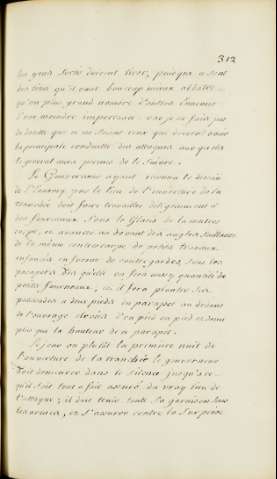 312
les gens sortis doivent tirer, puisque ce sont
des tems qu'il vaut beaucoup mieux abbatre
qu'un plus grand nombre d'autres
d'une moindre importance : car je ne fais pas
de doutte que ce ne soient ceux qui doivent avoir
la principale conduitte des attaques aux quelles
le general aura permis de le suivre.
Le Gouverneur ayant reconnu le dessin
de l'Ennemy, par le lieu de l'ouverture de la
tranchée doit faire travailler diligemment a
des fourneaux sous le Glacis de la
corps, et avancés au devant des angles saillants
de la même contrescarpe de petits travaux
en forme de contregardes, sous les
parapets des quels on fera aussy quantité de
petits fourneaux, et il fera planter les
palissades a deux pieds du parapet au dedans
de l'ouvrage élevées d'un pied et demi
plus que la hauteur de ce parapet.
Le jour ou plutôt la premiere nuit de
l'ouverture de la tranchée le gouverneur
doit demeurer dans le silence jusqu'a ce
qu'il soit tout a fait assuré du vray lieu de
l'attaque ; il doit tenir toute sa garnison sous
les armes, et s'assurer contre la surprise